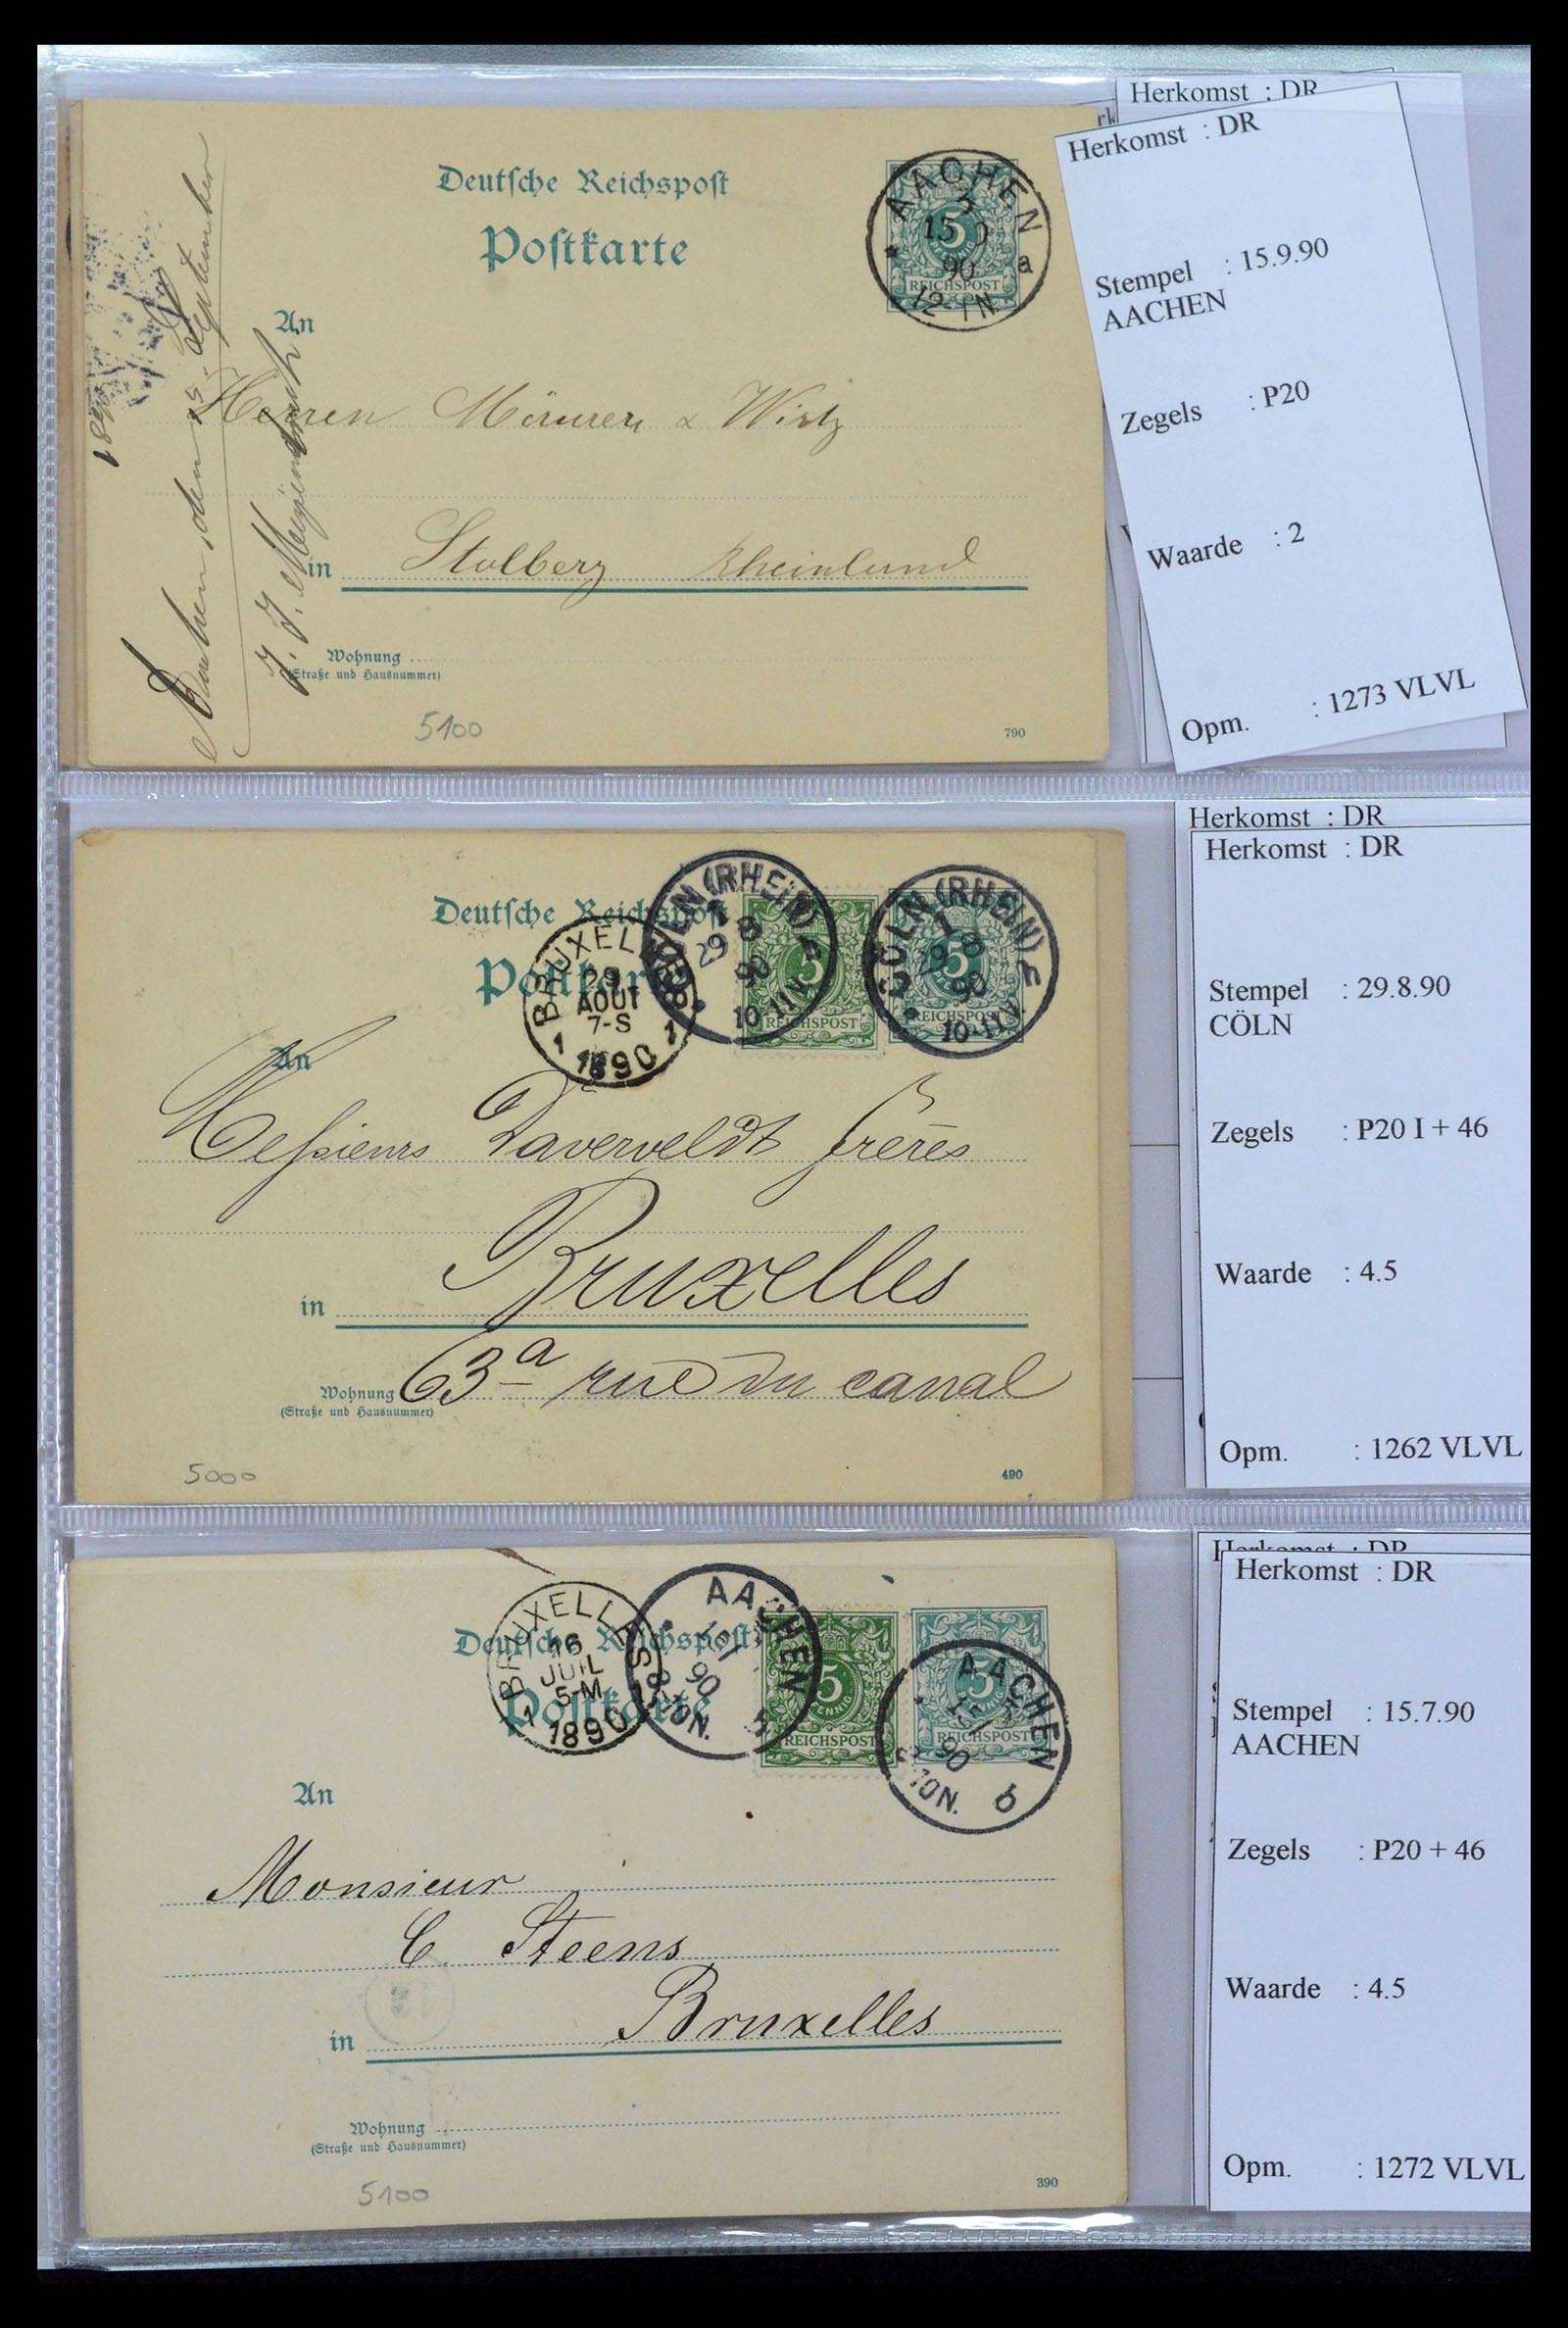 Herkomst : DR
Herkomst : DR
Stempel : 15.9.90
AACHEN
Zegels : P20
Waarde : 2
Opm. : 1273 VLVL
Deutſche Reichspoſt
Poſtkarte
AACHEN
15 9
90
12-1N
* a
5
REICHSPOST
An
Herren & Wirtz
in Stolberg Rheinland
Wohnung
(Straße und Hausnummer)
5100
790
Aachen, den 15. September
1890
Herkomst : DR
Herkomst : DR
Stempel : 29.8.90
CÖLN
Zegels : P20 I + 46
Waarde : 4.5
Opm. : 1262 VLVL
Deutſche Reichspoſt
Poſtkarte
CÖLN (RHEIN)
1
29 8
90
10-11V
5
REICHSPOST
CÖLN (RHEIN)
1
29 8
90
10-11V
5
REICHSPOST
BRUXELLES
29
AOUT
7-S
1 1890 1
An
Messieurs Taverveldt frères
in Bruxelles
Wohnung 63a rue du canal
(Straße und Hausnummer)
5000
490
Herkomst : DR
Herkomst : DR
Stempel : 15.7.90
AACHEN
Zegels : P20 + 46
Waarde : 4.5
Opm. : 1272 VLVL
Deutſche Reichspoſt
Poſtkarte
BRUXELLES
16
JUIL
5-M
1 1890
AACHEN
90
10N.
5
PFENNIG
REICHSPOST
AACHEN
15 7
90
10N.
b
5
PFENNIG
REICHSPOST
An
Monsieur
C Steens
in Bruxelles
Wohnung
(Straße und Hausnummer)
5100
390